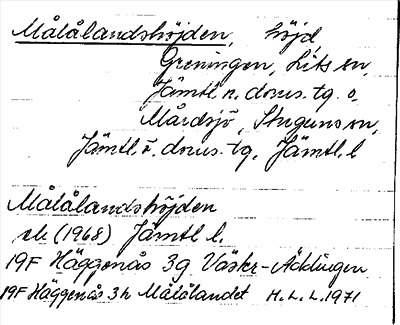 Målålandshöjden, höjd
Greningen, Lits sn,
Jämtl. n. doms. tg. o.
Mårdsjö, Stuguns sn,
Jämtl. ö. doms. tg, Jämtl. l
Målålandshöjden
ek. (1968) Jämtl l.
19F Häggenås 3g Väster-Acklingen
19F Häggenås 3h Målålandet H.L.L. 1971